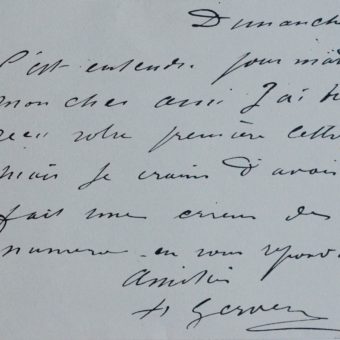 Dimanche
C'est entendu pour ma
mon cher ami J'ai b
reçu votre première lettre
mais je crains d'avoir
fait une erreur de
numero en vous répond
Amitiés
H Gervex